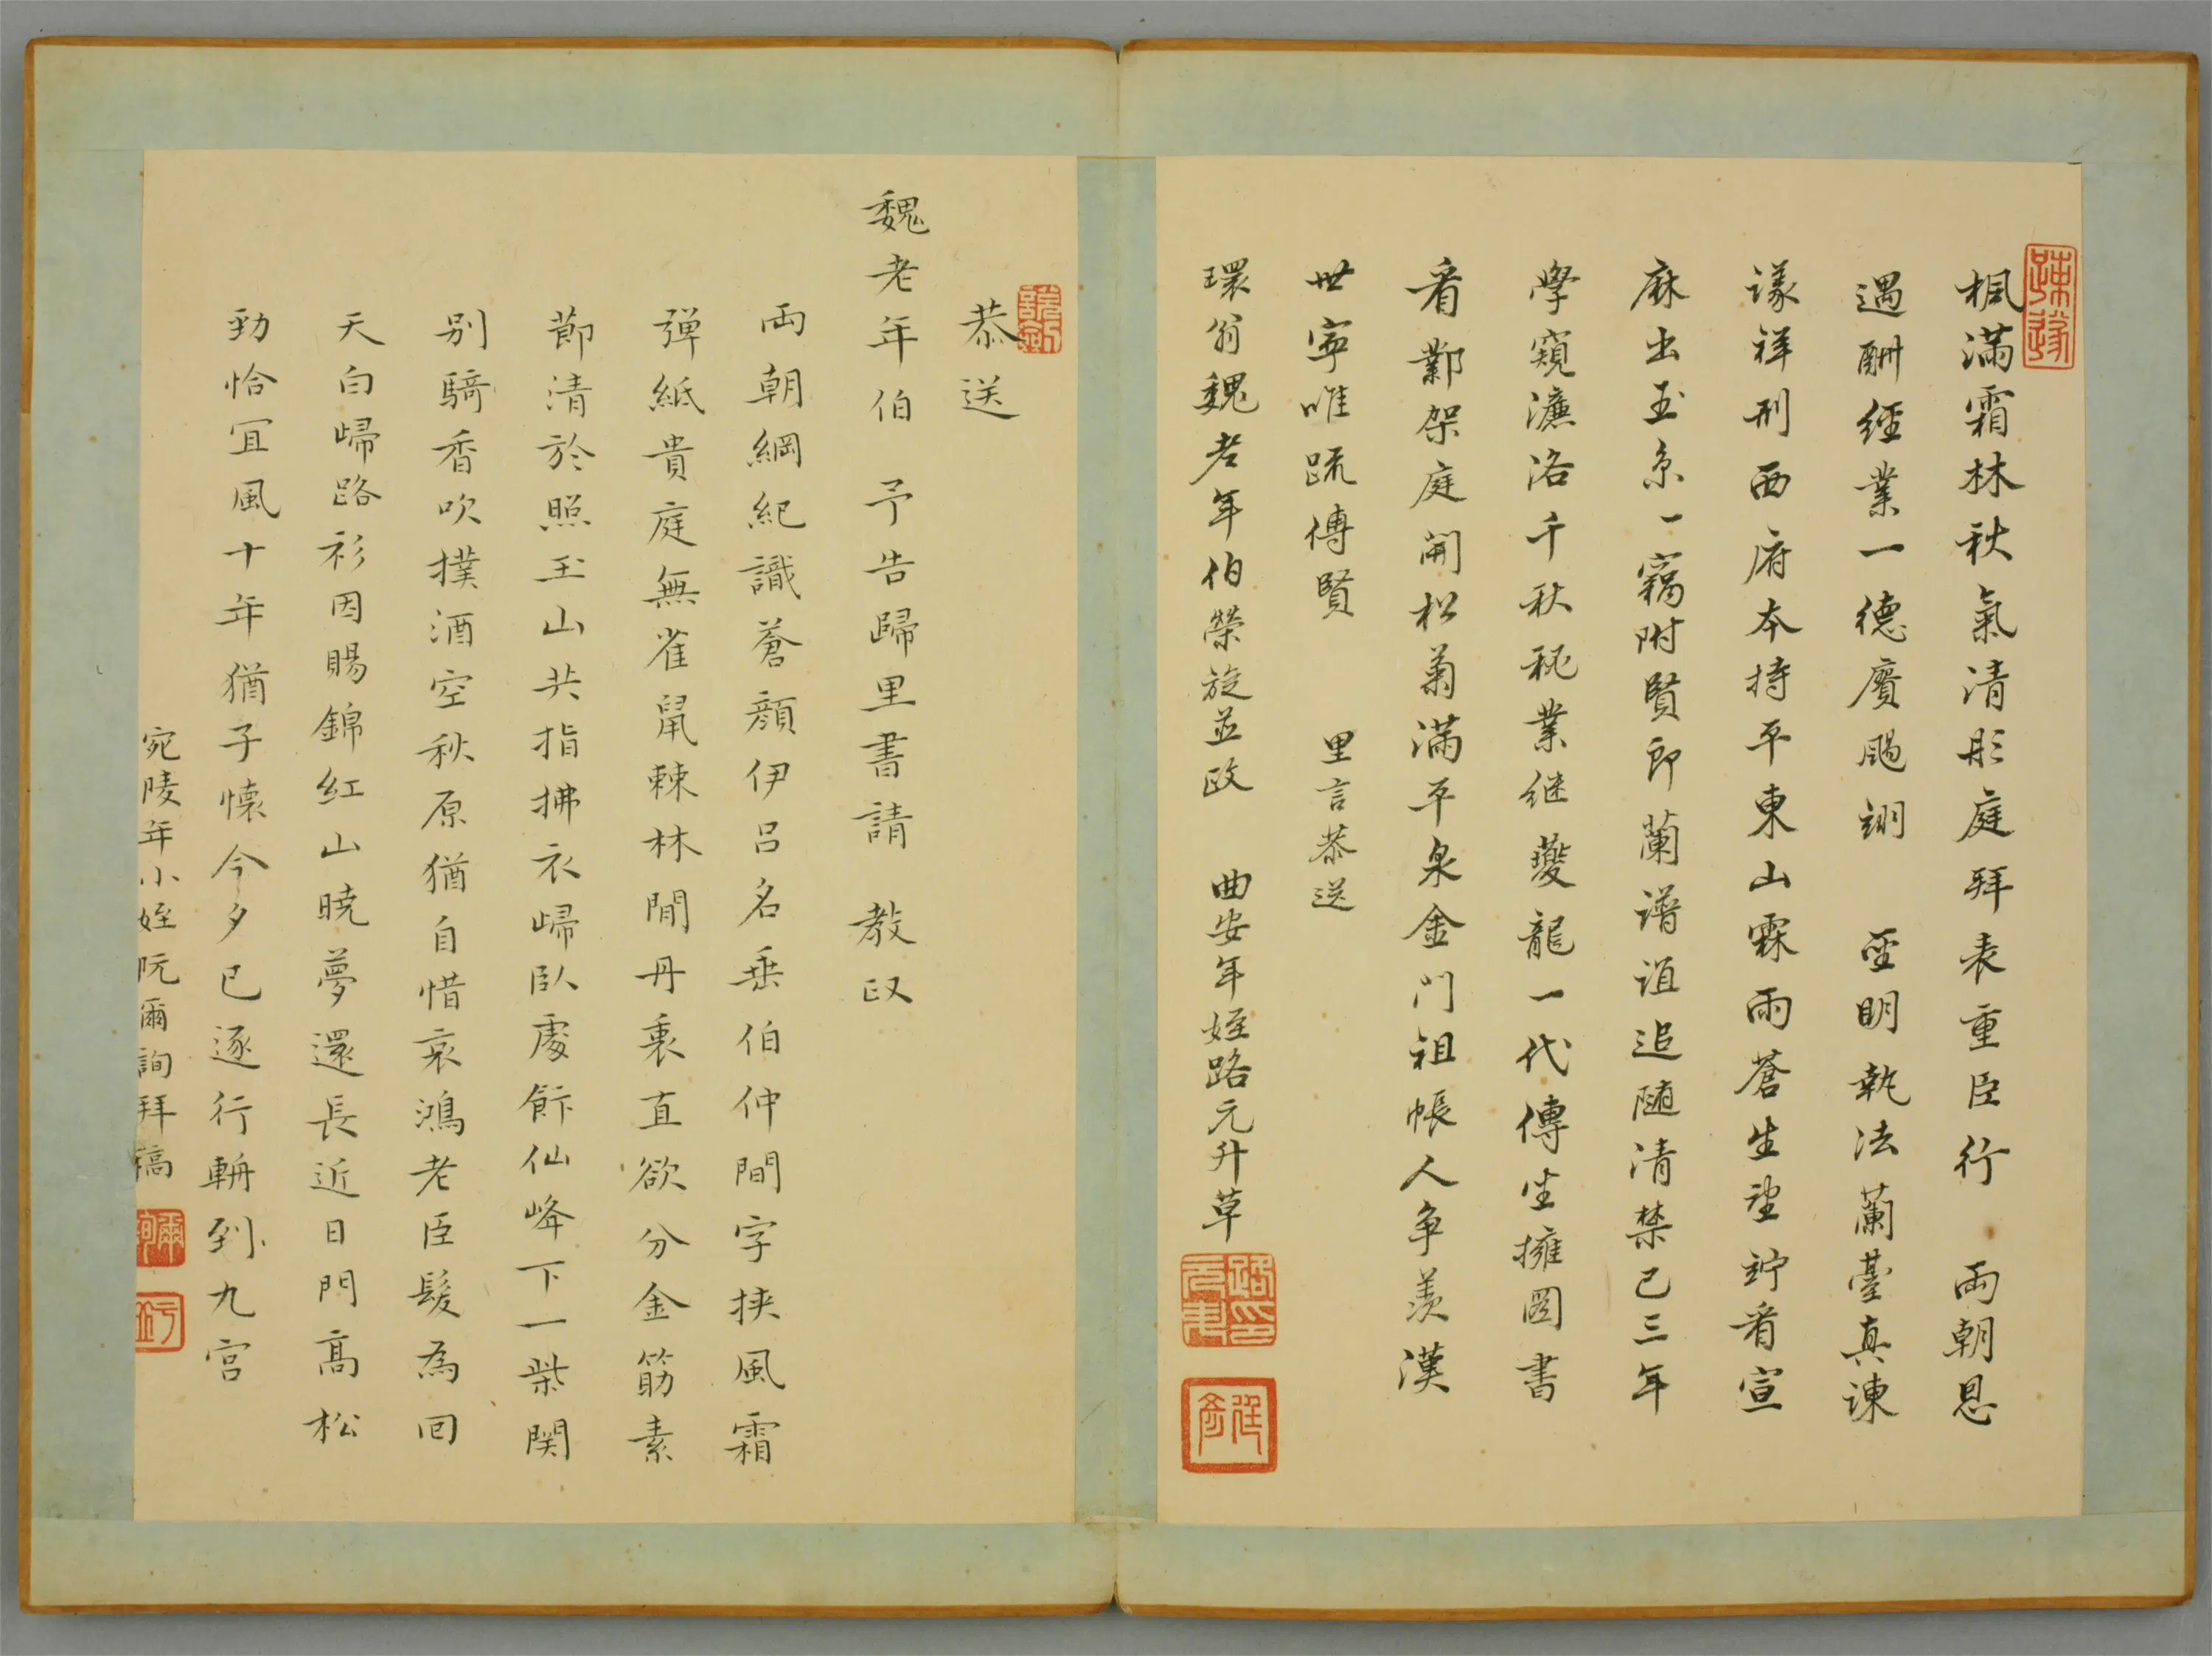 楓滿霜林秋氣清彤庭拜表重臣行　兩朝恩
遇酬經業一德賡颺翊　聖明執法蘭臺真諫
議祥刑西府本持平東山霖雨蒼生望竚看宣
麻出玉京一竊附賢郎蘭譜誼追随清禁已三年
學窺濂洛千秋秘業継夔龍一代傳坐擁圖書
看鄴架庭開松菊滿平泉金門祖帳人争羨漢
世寧唯疏傅賢　里言恭送
環翁魏老年伯榮旋並政　曲安年姪路元升草
恭送
魏老年伯　予告歸里書請　教政
兩朝綱紀識蒼顏伊吕名垂伯仲間字挟風霜
彈紙貴庭無雀鼠棘林閒丹裏直欲分金筯素
節清於照玉山共指拂衣歸臥處飰仙峰下一柴関
别騎香吹撲酒空秋原猶自惜哀鴻老臣髮為囘
天白歸路衫因賜錦紅山曉夢還長近日門高松
勁恰宜風十年猶子懷今夕已逐行輈到九宫
宛陵年小姪阮爾詢拜稿